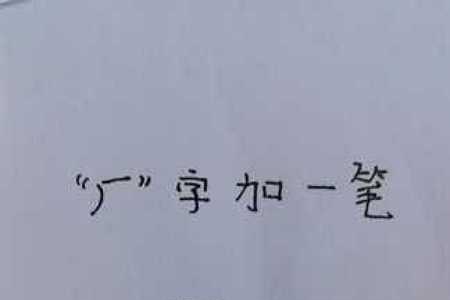 “厂”字加一笔